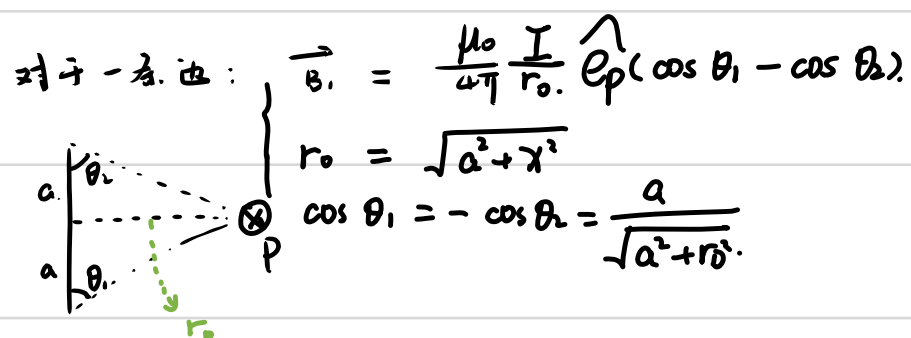 对于一条边: B⃗₁ = μ₀/4π I/r₀. ê_p(cos θ₁ - cos θ₂).
r₀ = √(a²+x²)
cos θ₁ = - cos θ₂ = a/√(a²+r₀²).
a
θ₂
a
θ₁
P
r₀